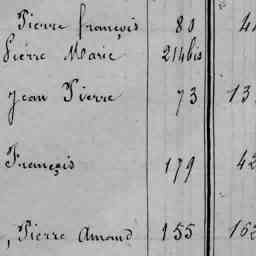 Pierre françois 80 4
Pierre Marie 214bis
Jean Pierre 73 13
François 179 42
, Pierre Amand 155 162